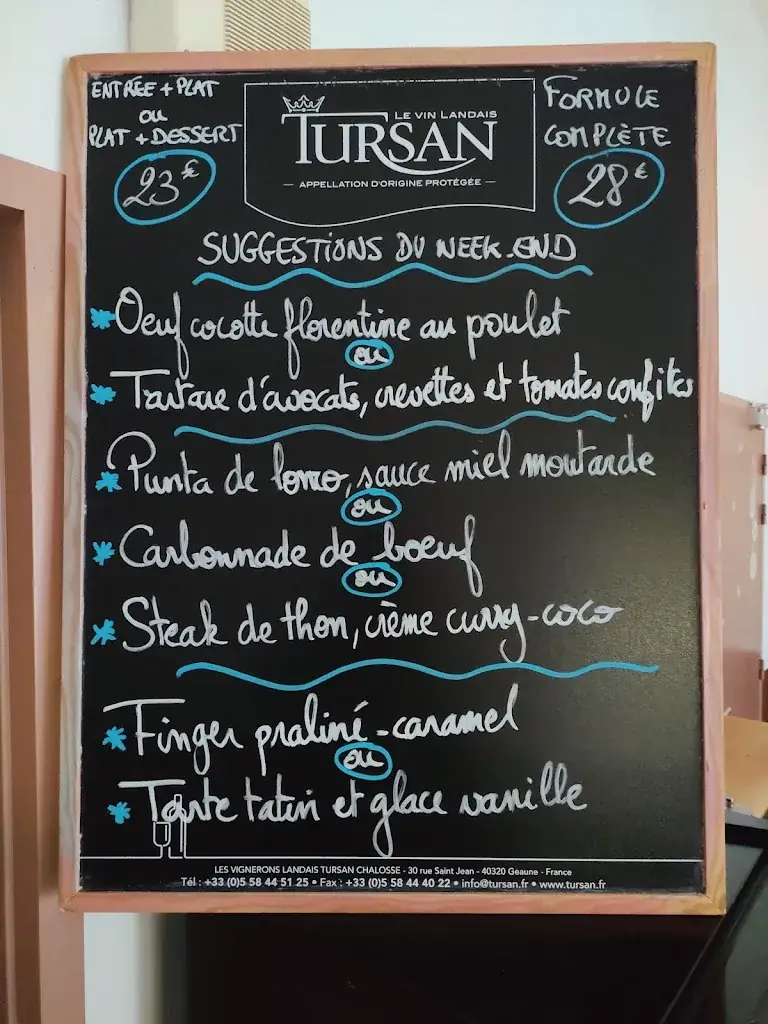 ENTRÉE + PLAT
OU
PLAT + DESSERT
23€
LE VIN LANDAIS
TURSAN
APPELLATION D'ORIGINE PROTÉGÉE
FORMULE
COMPLÈTE
28€
SUGGESTIONS DU WEEK-END
* Oeuf cocotte florentine au poulet
ou
* Tartare d'avocats, crevettes et tomates confites
* Punta de lomo, sauce miel moutarde
ou
* Carbonnade de boeuf
ou
* Steak de thon, crème curry-coco
* Finger praliné-caramel
ou
* Tarte tatin et glace vanille
LES VIGNERONS LANDAIS TURSAN CHALOSSE - 30 rue Saint Jean - 40320 Geaune - France
Tél : +33 (0)5 58 44 51 25 • Fax : +33 (0)5 58 44 40 22 • info@tursan.fr • www.tursan.fr